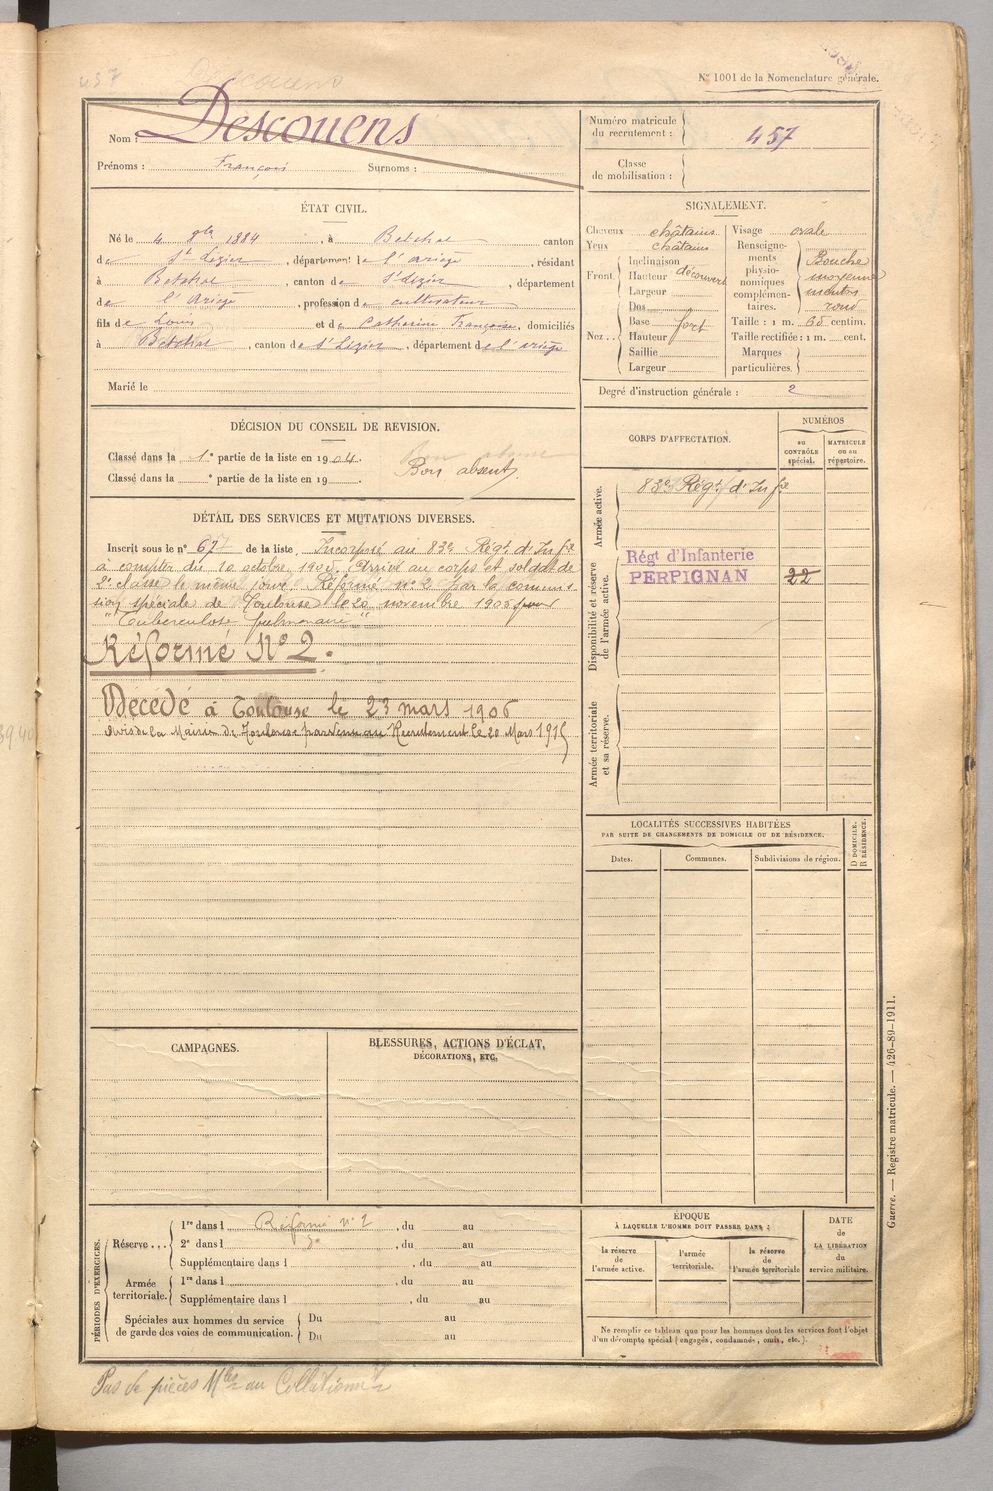 457
Descouens
N° 1001 de la Nomenclature générale.
Nom : Descouens
Prénoms : François Surnoms :
Numéro matricule du recrutement : 457
Classe de mobilisation :
ÉTAT CIVIL.
Né le 4 9bre 1884, à Betchat canton
de St Lizier, département de l'Ariège, résidant
à Betchat, canton de St Lizier, département
de l'Ariège, profession de cultivateur
fils de Louis et de Catherine Françoise, domiciliés
à Betchat, canton de St Lizier, département de l'Ariège
Marié le
SIGNALEMENT.
Cheveux châtains
Yeux châtains
Front Inclinaison
Hauteur découvert
Largeur
Nez Dos
Base fort
Hauteur
Saillie
Largeur
Visage ovale
Renseignements physionomiques complémentaires. Bouche moyenne menton rond
Taille : 1 m. 65 centim.
Taille rectifiée : 1 m. cent.
Marques particulières.
Degré d'instruction générale : 2
DÉCISION DU CONSEIL DE REVISION.
Classé dans la 1e partie de la liste en 1904.
Classé dans la e partie de la liste en 19
Bon absent
CORPS D'AFFECTATION.
NUMÉROS
au CONTRÔLE spécial.
MATRICULE ou au répertoire.
Armée active.
83e Régt d'Infie
Disponibilité et réserve de l'armée active.
Régt d'Infanterie
PERPIGNAN 22
Armée territoriale et sa réserve.
DÉTAIL DES SERVICES ET MUTATIONS DIVERSES.
Inscrit sous le n° 67 de la liste. Incorporé au 83e Régt d'Infie
à compter du 10 octobre 1905. Arrivé au corps et soldat de
2e classe le même jour. Réformé n° 2 par la commis-
sion spéciale de Toulouse le 20 novembre 1905 pour
"Tuberculose pulmonaire"
Réformé N° 2.
Décédé à Toulouse le 23 mars 1906
Avis de la Mairie de Toulouse parvenu au Recrutement le 20 Mars 1915
LOCALITÉS SUCCESSIVES HABITÉES
PAR SUITE DE CHANGEMENTS DE DOMICILE OU DE RÉSIDENCE.
Dates. Communes. Subdivisions de région.
D DOMICILE.
R RÉSIDENCE.
CAMPAGNES.
BLESSURES, ACTIONS D'ÉCLAT,
DÉCORATIONS, ETC.
PÉRIODES D'EXERCICES.
Réserve... 1re dans l Réformé n° 2, du au
2e dans l , du au
Supplémentaire dans l , du au
Armée territoriale. 1re dans l , du au
Supplémentaire dans l , du au
Spéciales aux hommes du service de garde des voies de communication. Du au
Du au
ÉPOQUE
À LAQUELLE L'HOMME DOIT PASSER DANS :
la réserve de l'armée active.
l'armée territoriale.
la réserve de l'armée territoriale
DATE de LA LIBÉRATION du service militaire.
Ne remplir ce tableau que pour les hommes dont les services font l'objet
d'un décompte spécial (engagés, condamnés, omis, etc.).
Guerre. — Registre matricule. — 426-89-1911.
Pas de pièces Mles au Collationnt